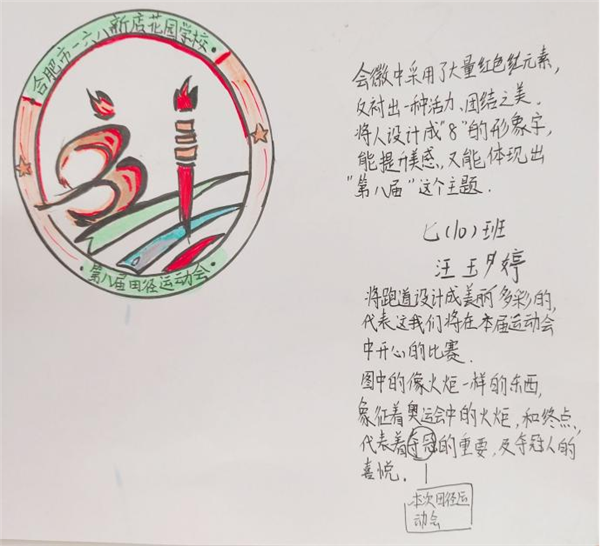 合肥市一六八新店花园学校
第八届田径运动会
会徽中采用了大量红色红元素,
反衬出一种活力、团结之美.
将人设计成"8"的形象字,
能提升美感,又能体现出
"第八届"这个主题.
七(10)班
汪玉夕婷
将跑道设计成美丽多彩的,
代表这我们将在本届运动会
中开心的比赛.
图中的像火炬一样的东西,
象征着奥运会中的火炬,和终点,
代表着夺冠的重要,及夺冠人的
喜悦.
本次田径运
动会